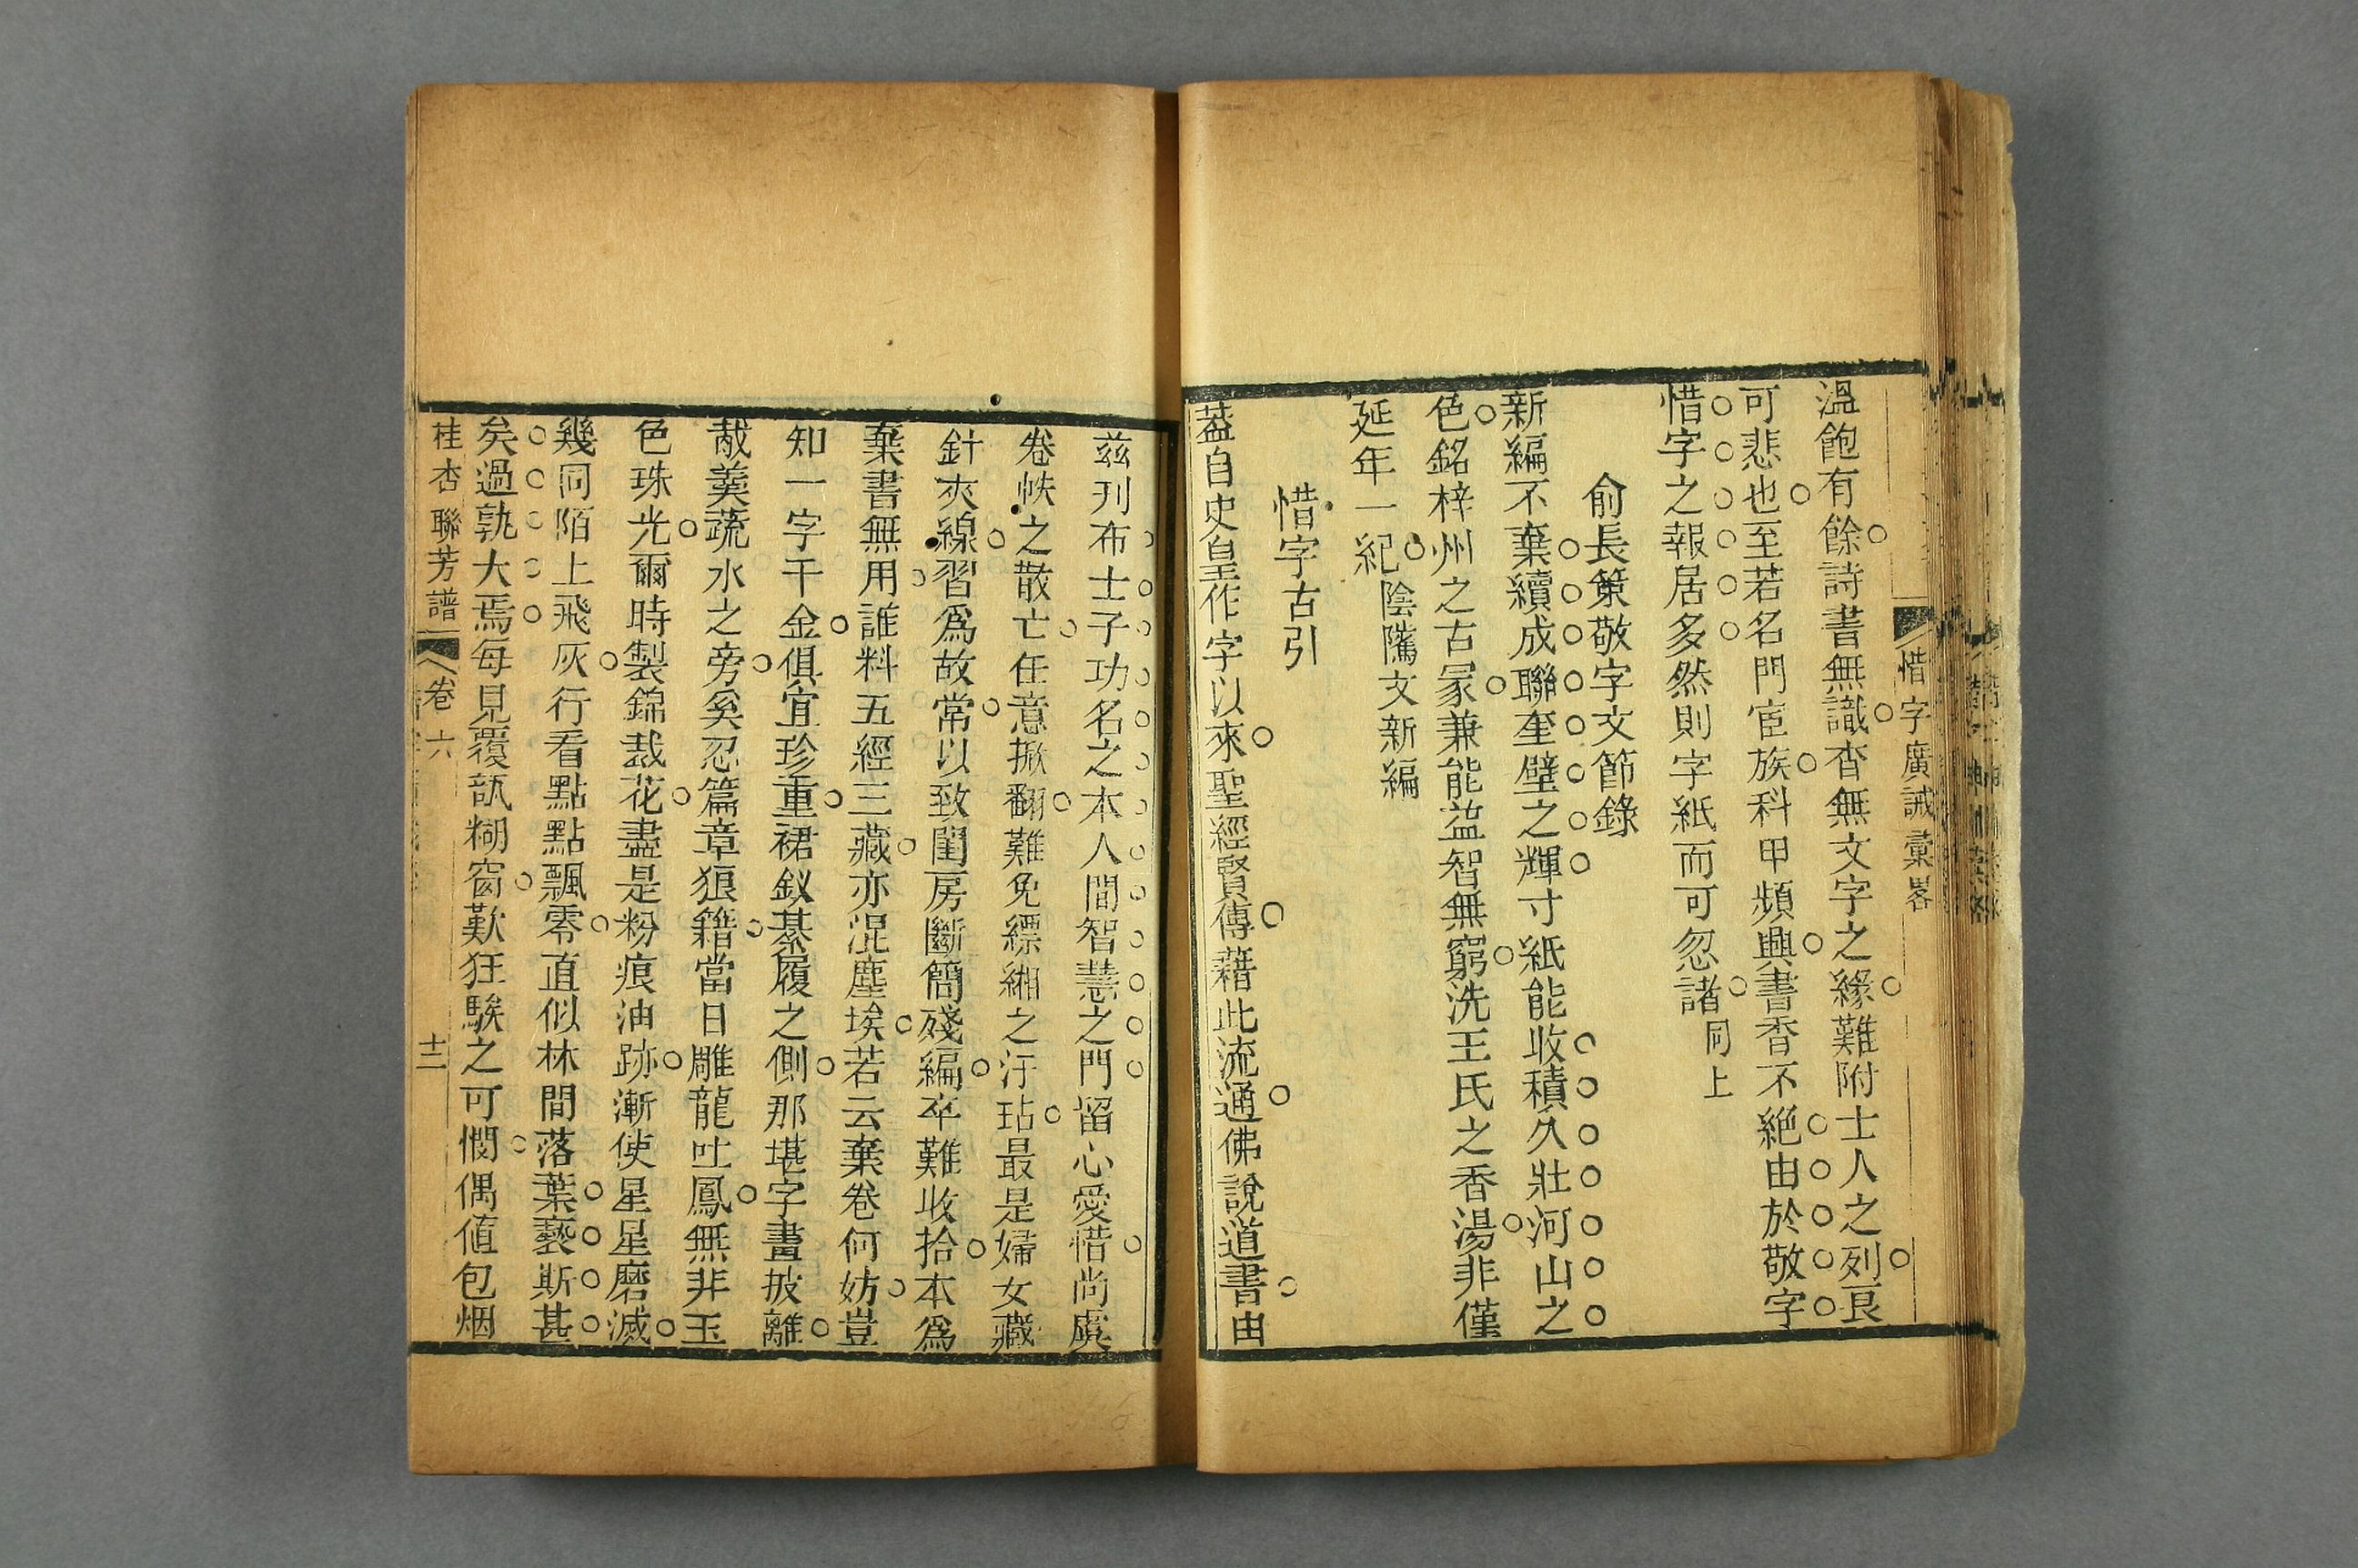 惜字廣誡彙畧
溫飽有餘詩書無識杳無文字之緣難附士人之列良
可悲也至若名門宦族科甲頻興書香不絕由於敬字
惜字之報居多然則字紙而可忽諸同上
俞長策敬字文節錄
新編不棄續成聯奎壁之輝寸紙能收積久壯河山之
色銘梓州之古冢兼能益智無窮洗王氏之香湯非僅
延年一紀陰隲文新編
惜字古引
葢自史皇作字以來聖經賢傳藉此流通佛說道書由
兹刋布士子功名之本人間智慧之門留心愛惜尚虞
卷帙之散亡任意掀翻難免縹緗之汙玷最是婦女藏
針夾線習爲故常以致閨房斷簡殘編卒難收拾本爲
棄書無用誰料五經三藏亦混塵埃若云棄卷何妨豈
知一字千金俱宜珍重裙釵綦履之側那堪字畫披離
胾羹蔬水之旁奚忍篇章狼籍當日雕龍吐鳳無非玉
色珠光爾時製錦裁花盡是粉痕油跡漸使星星磨滅
幾同陌上飛灰行看點點飄零直似林間落葉褻斯甚
矣過孰大焉每見覆瓿糊窗歎狂騃之可憫偶值包烟
桂杏聯芳譜 卷六 十二